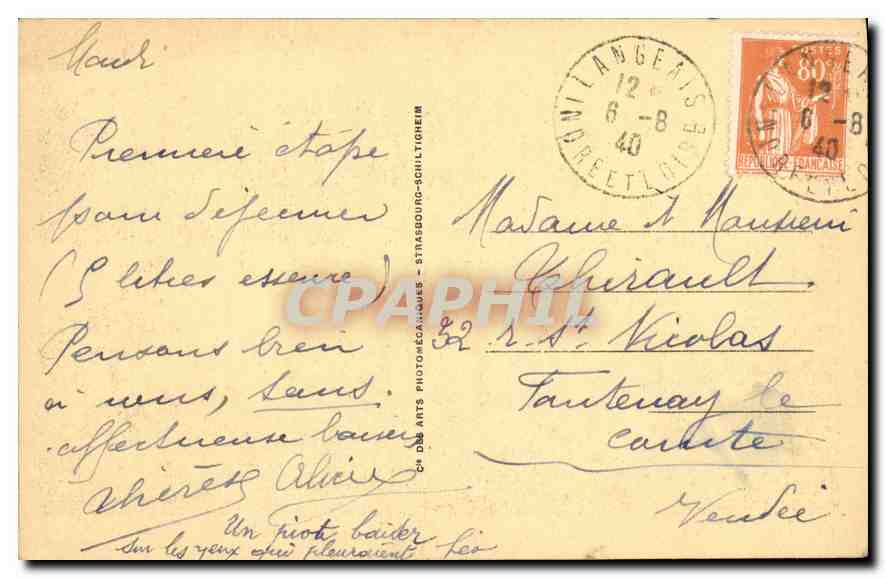 Mardi
Première étape
pour déjeuner
(5 litres essence)
Pensons bien
à vous, tous.
affectueuse baiser
Thérèse Alice
Un baiser
sur les yeux qui pleuraient Léo
Cie DES ARTS PHOTOMÉCANIQUES - STRASBOURG-SCHILTIGHEIM
LANGEAIS
12
6 -8
40
INDRE ET LOIRE
POSTES
80c
RÉPUBLIQUE FRANÇAISE
12
6 -8
40
Madame et Monsieur
Thirault.
32 r. St. Nicolas
Fontenay le
Comte
Vendée
CPAPHIL